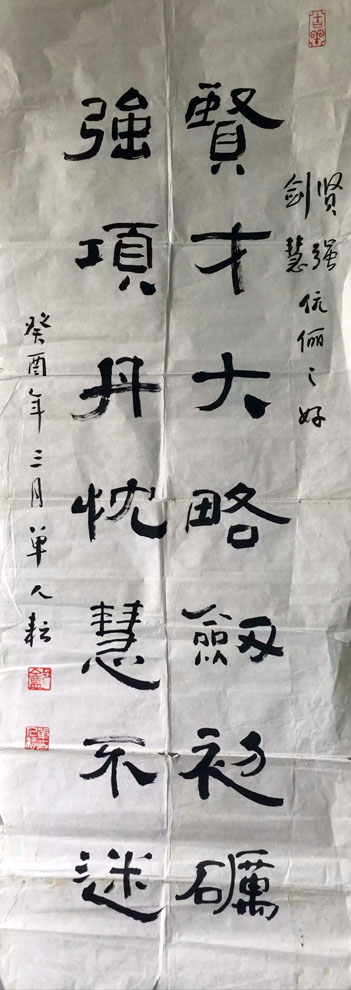 贤强
剑慧 伉俪之好
賢才大略劔初礪
強項丹忱慧不迷
癸酉年三月单人耘